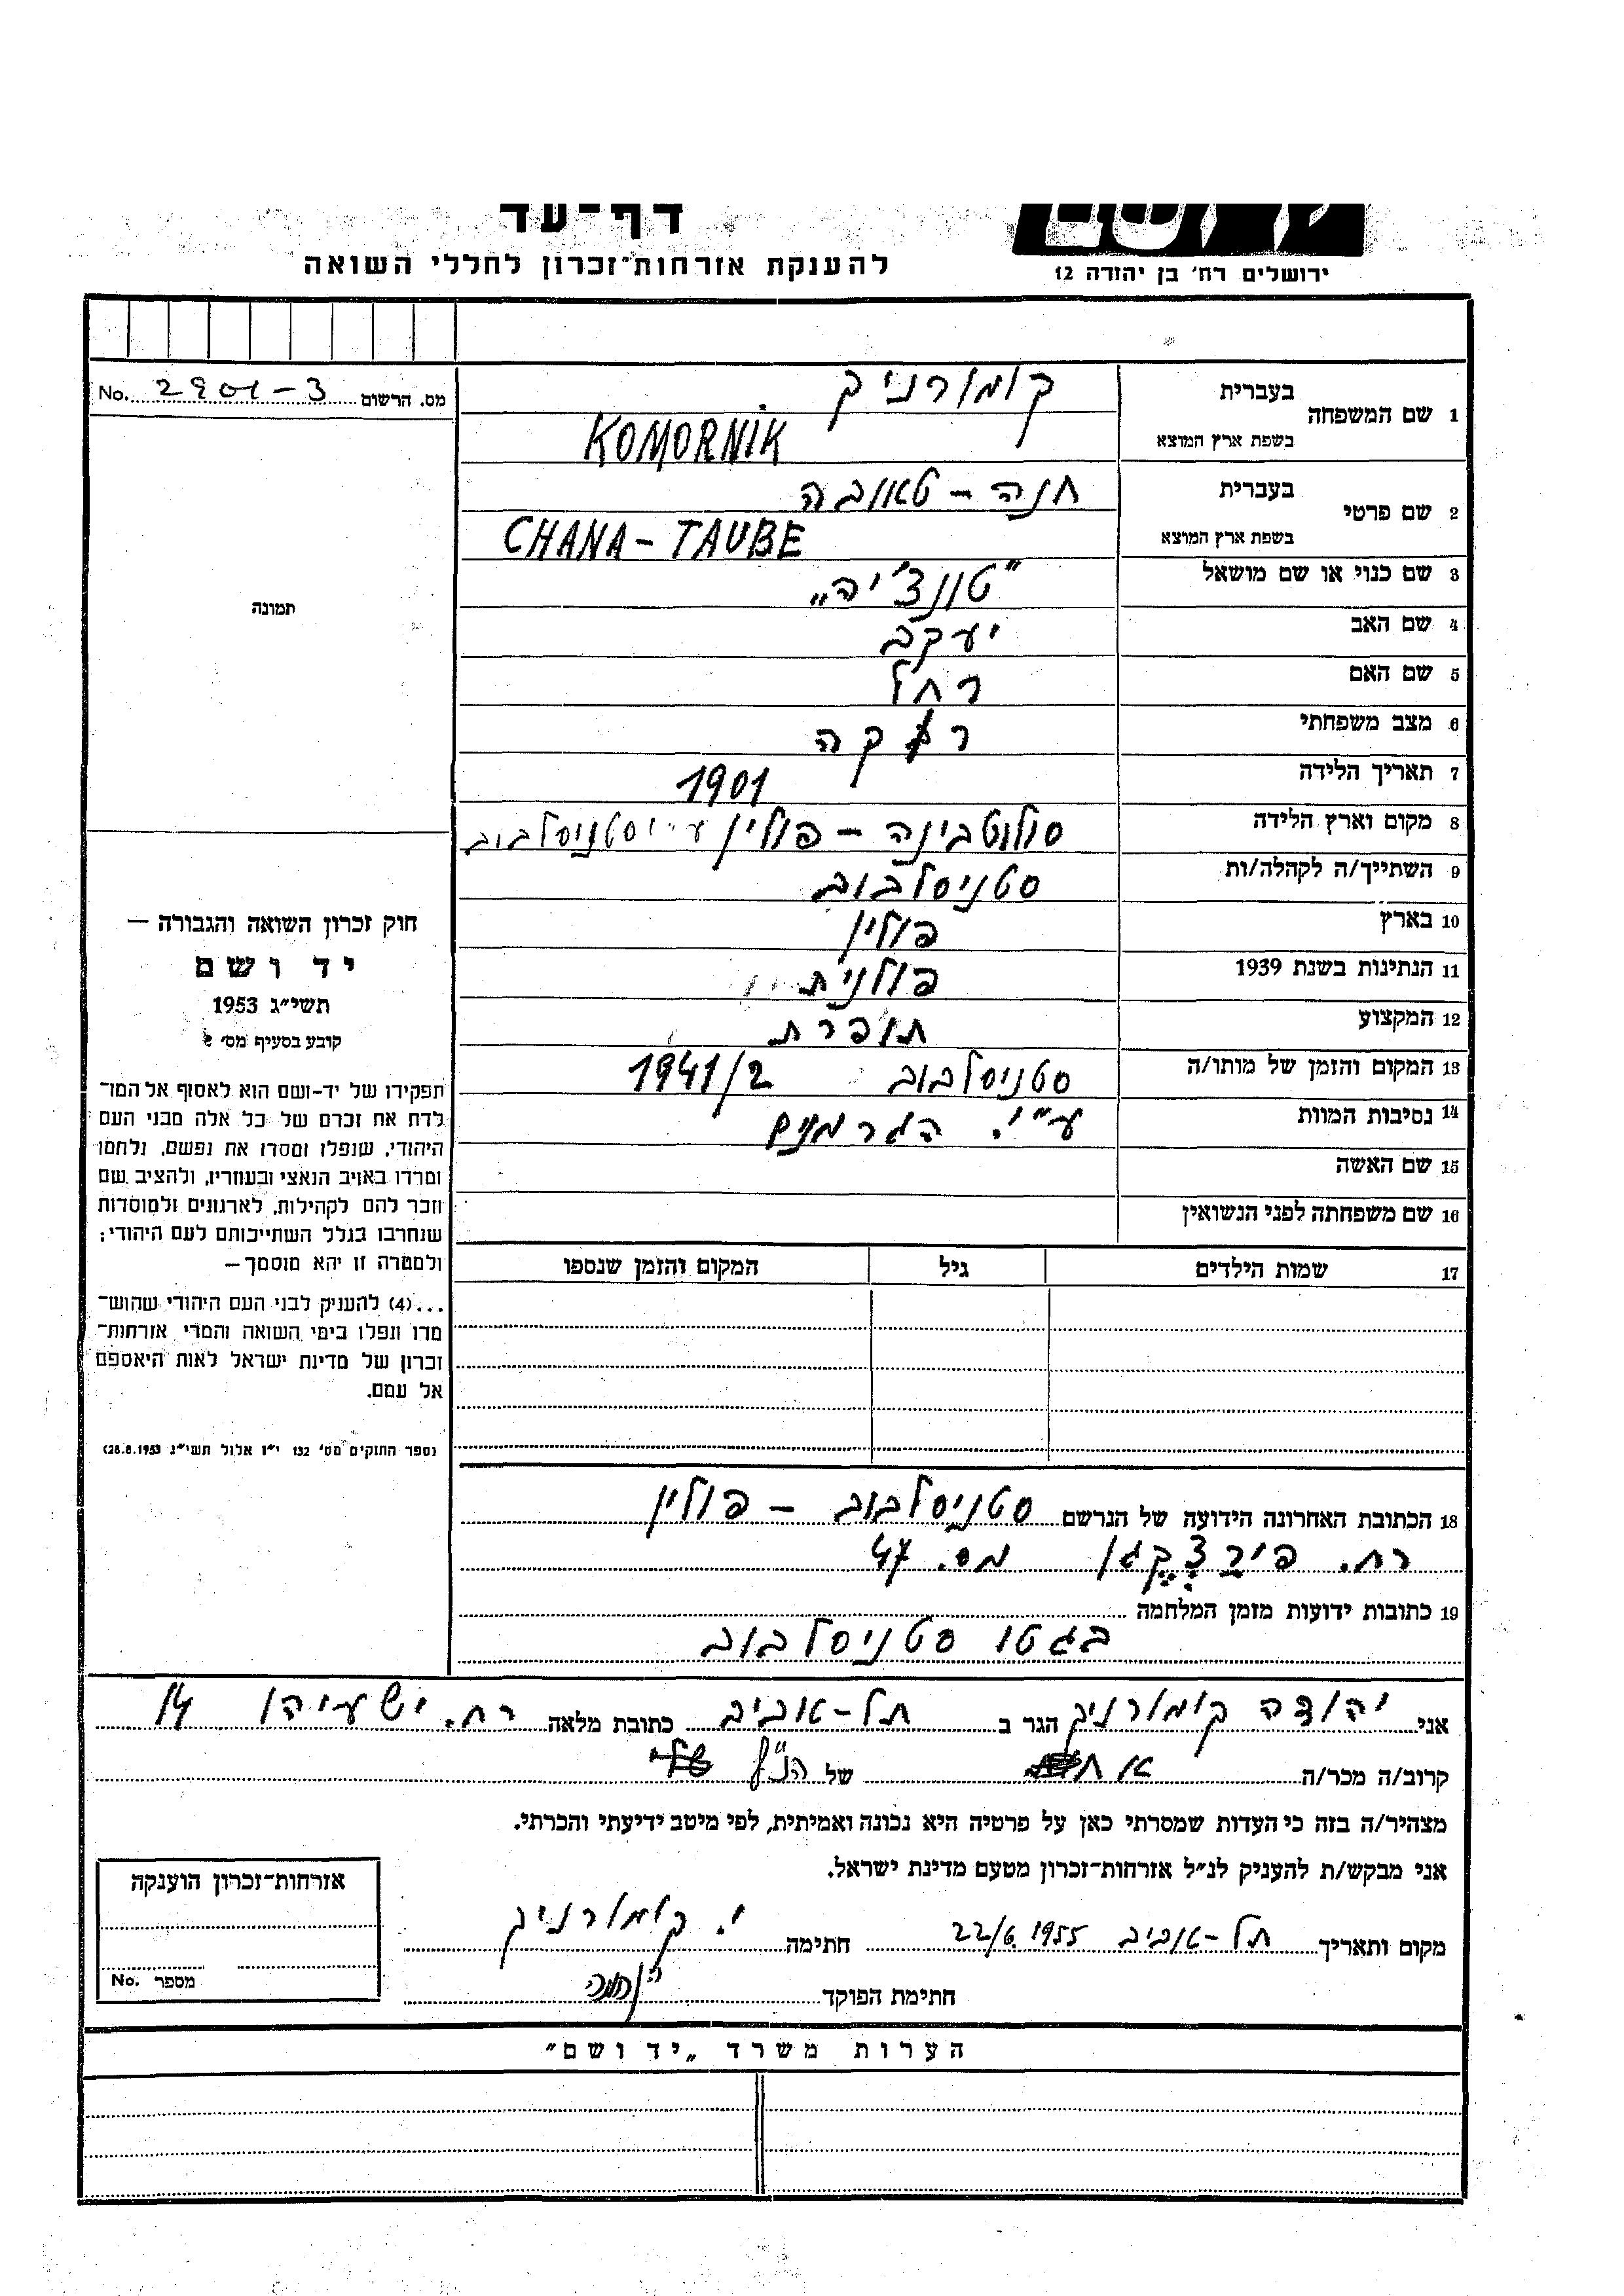 דף-עד
להענקת אזרחות-זכרון לחללי השואה
ירושלים רח' בן יהודה 12
מס. הרשום 2901-3 No.
1 שם המשפחה בעברית קומורניק
בשפת ארץ המוצא KOMORNIK
2 שם פרטי בעברית חנה - טאובה
בשפת ארץ המוצא CHANA - TAUBE
3 שם כנוי או שם מושאל "טונצ'יה"
4 שם האב יעקב
5 שם האם רחל
6 מצב משפחתי רוקה
7 תאריך הלידה 1901
8 מקום וארץ הלידה סולוטבינה - פולין ע"י סטניסלבוב
9 השתייך/ה לקהלה/ות סטניסלבוב
10 בארץ פולין
11 הנתינות בשנת 1939 פולנית
12 המקצוע תופרת
13 המקום והזמן של מותו/ה סטניסלבוב 1941/2
14 נסיבות המוות ע"י. הגרמנים
15 שם האשה
16 שם משפחתה לפני הנשואין
17 שמות הילדים גיל המקום והזמן שנספו
תמונה
חוק זכרון השואה והגבורה —
יד ושם
תשי"ג 1953
קובע בסעיף מס' 2
תפקידו של יד-ושם הוא לאסוף אל המו-
לדת את זכרם של כל אלה מבני העם
היהודי, שנפלו ומסרו את נפשם, נלחמו
ומרדו באויב הנאצי ובעוזריו, ולהציב שם
וזכר להם לקהילות, לארגונים ולמוסדות
שנחרבו בגלל השתייכותם לעם היהודי;
ולמטרה זו יהא מוסמך —
...(4) להעניק לבני העם היהודי שהוש-
מדו ונפלו בימי השואה והמרי אזרחות-
זכרון של מדינת ישראל לאות היאספם
אל עמם.
(ספר החוקים מס' 132 י"ז אלול תשי"ג 28.8.1953)
18 הכתובת האחרונה הידועה של הנרשם סטניסלבוב - פולין
רח. מס. 47
19 כתובות ידועות מזמן המלחמה
בגטו סטניסלבוב
אני יהודה קומורניק הגר ב תל-אביב כתובת מלאה רח. ישעיהו 14
קרוב/ה מכר/ה אח של הנ"ל
מצהיר/ה בזה כי העדות שמסרתי כאן על פרטיה היא נכונה ואמיתית, לפי מיטב ידיעתי והכרתי.
אני מבקש/ת להעניק לנ"ל אזרחות-זכרון מטעם מדינת ישראל.
מקום ותאריך תל-אביב 22/6 1955 חתימה י. קומורניק
חתימת הפוקד
אזרחות-זכרון הוענקה
מספר No.
הערות משרד "יד ושם"